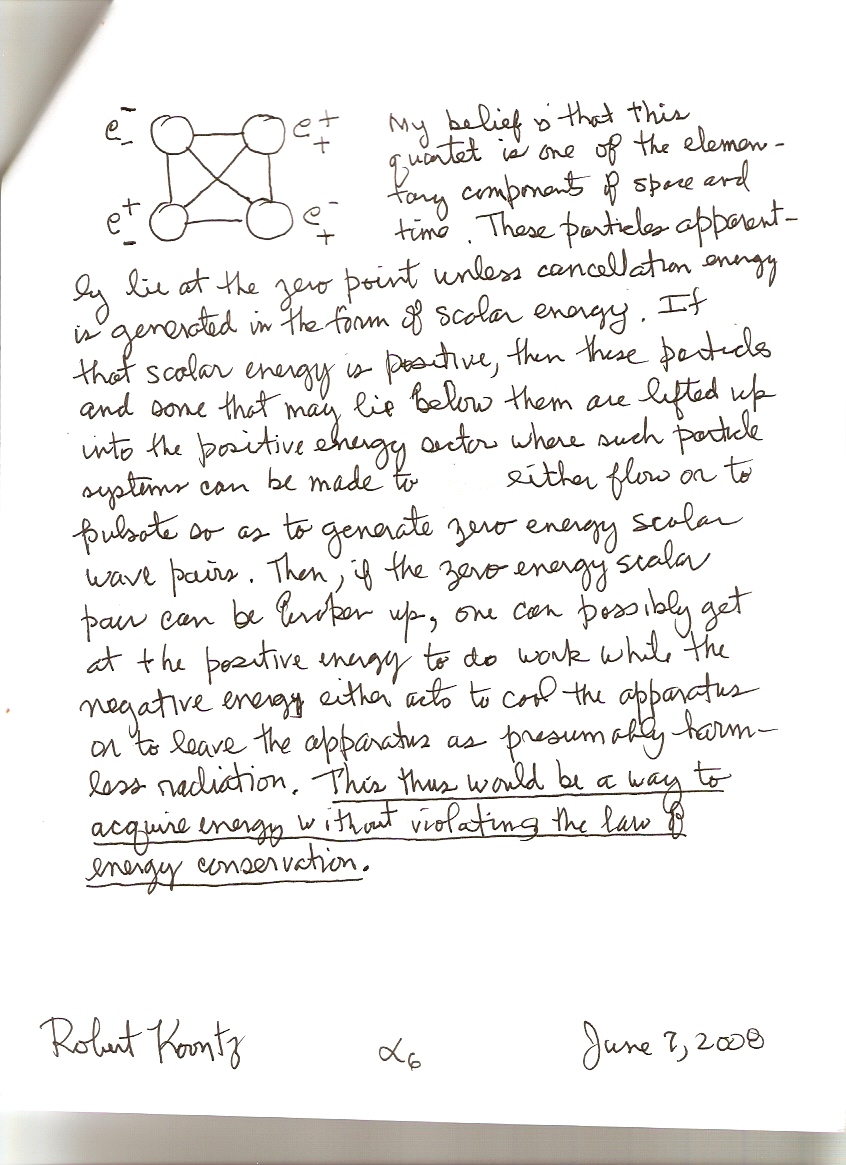 e⁻₋ e⁺₊ My belief is that this
quartet is one of the elemen-
tary components of space and
e⁺₋ e⁻₊ time. These particles apparent-
ly lie at the zero point unless cancellation energy
is generated in the form of scalar energy. If
that scalar energy is positive, then these particles
and some that may lie below them are lifted up
into the positive energy sector where such particle
systems can be made to either flow or to
pulsate so as to generate zero energy scalar
wave pairs. Then, if the zero energy scalar
pair can be broken up, one can possibly get
at the positive energy to do work while the
negative energy either acts to cool the apparatus
or to leave the apparatus as presumably harm-
less radiation. This thus would be a way to
acquire energy without violating the law of
energy conservation.
Robert Koontz α₆ June 7, 2008